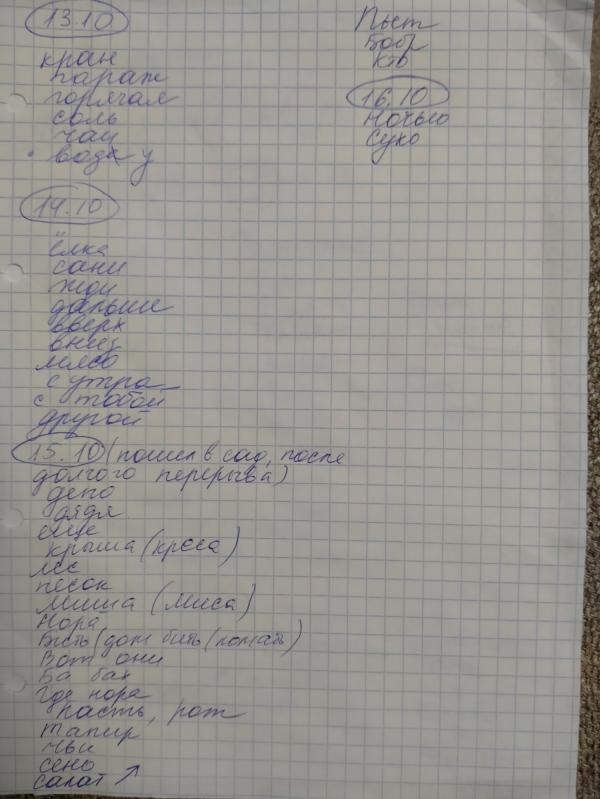 13.10
кран
параж
горячая
соль
чаи
водa у
14.10
ёлка
сани
жди
дальше
вверх
вниз
мясо
с утра
с тобой
другой
15.10 (пошел в сад, после
долгого перерыва)
депо
дядя
еще
крыша (крсса)
лес
песок
Миша (Миса)
Нора
Вот они
Ба бах
Где нора
пасть, рот
тапир
чьи
сено
салат ↗
Пьет
Бобр
Кто
16.10
Ночью
Сухо